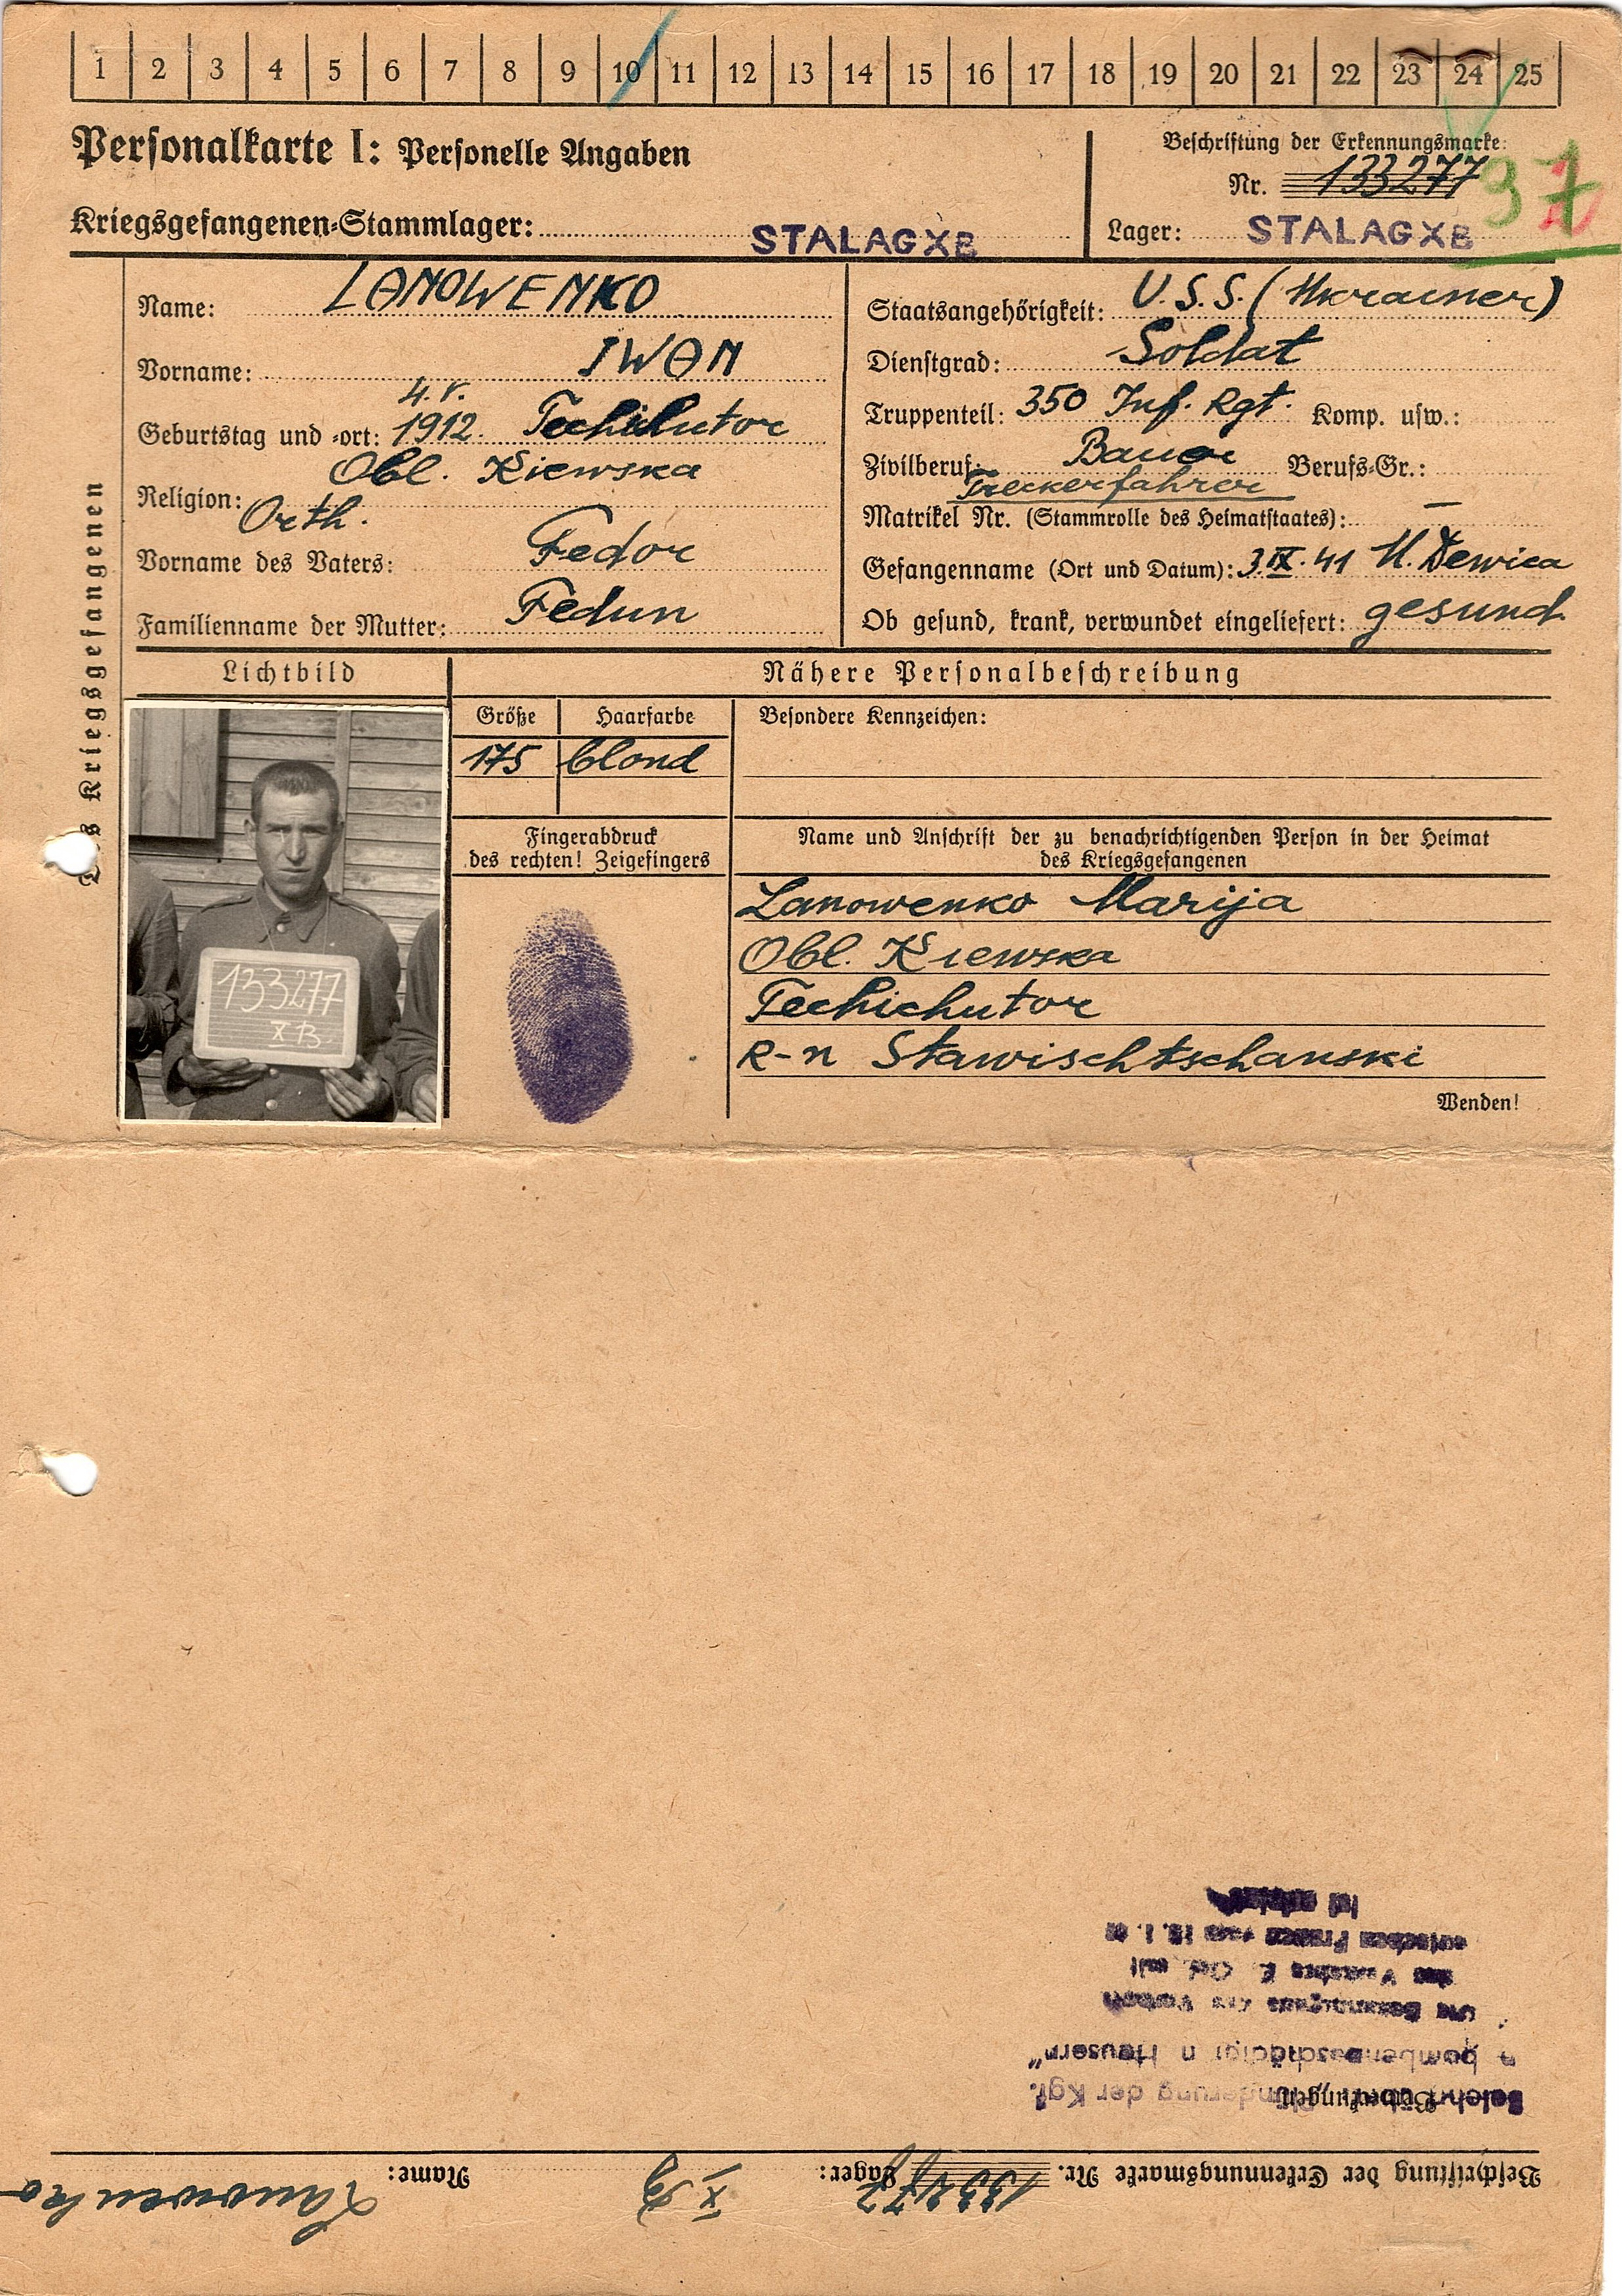 1 2 3 4 5 6 7 8 9 10 11 12 13 14 15 16 17 18 19 20 21 22 23 24 25
Personalkarte I: Personelle Angaben
Beschriftung der Erkennungsmarke:
Nr. 133277
37
Kriegsgefangenen-Stammlager: STALAG XB
Lager: STALAG XB
des Kriegsgefangenen
Name: LANOWENKO
Vorname: IWAN
4.V.
Geburtstag und -ort: 1912.
Obl. Kiewska
Religion: Orth.
Vorname des Vaters: Fedor
Familienname der Mutter: Fedun
Staatsangehörigkeit: U.S.S. (Ukrainer)
Dienstgrad: Soldat
Truppenteil: 350 Inf. Rgt. Komp. usw.:
Zivilberuf: Bauer Berufs-Gr.:
Treckerfahrer
Matrikel Nr. (Stammrolle des Heimatstaates): –
Gefangenname (Ort und Datum): 3.IX.41 M. Dewica
Ob gesund, krank, verwundet eingeliefert: gesund.
Lichtbild
Nähere Personalbeschreibung
Größe Haarfarbe Besondere Kennzeichen:
175 blond
133277
XB
Fingerabdruck
des rechten! Zeigefingers
Name und Anschrift der zu benachrichtigenden Person in der Heimat
des Kriegsgefangenen
Lanowenko Marija
Obl. Kiewska
Techichutor
R-n Stawischtschanski
Wenden!
Beschriftung der Erkennungsmarke Nr. 133277 Lager: XB Name: Lanowenko
Bemerkungen:
der Kgf.